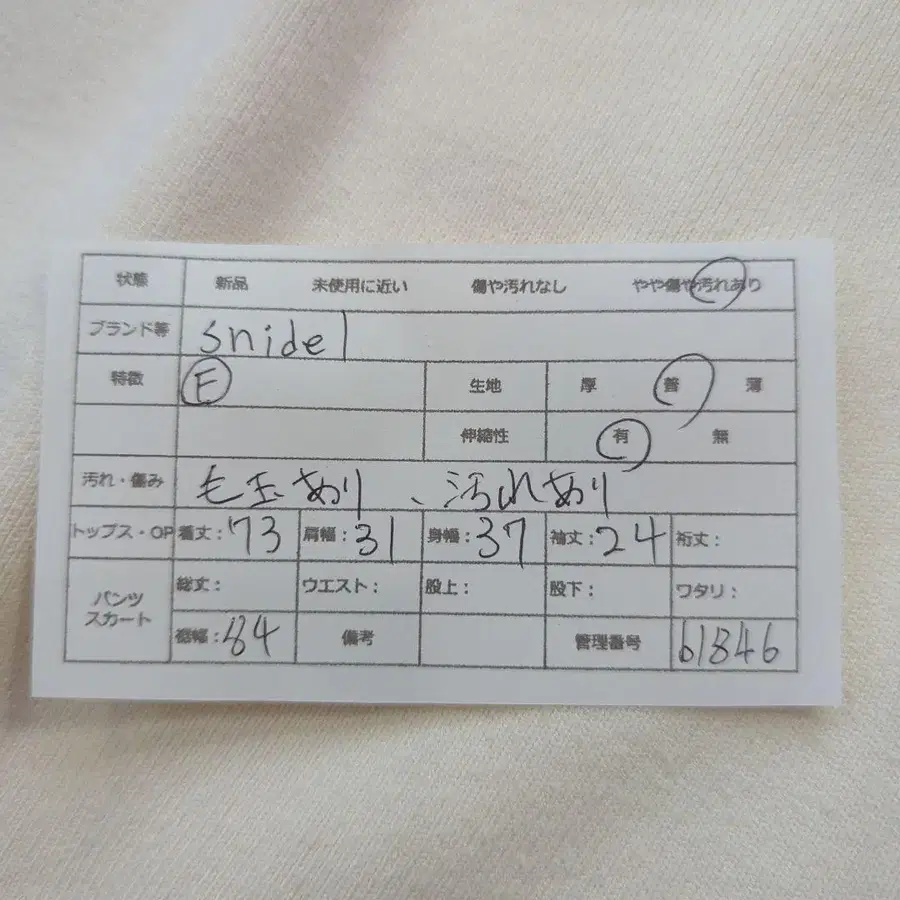 状態 新品 未使用に近い 傷や汚れなし やや傷や汚れあり
ブランド等 snidel
特徴 F 生地 厚 普 薄
伸縮性 有 無
汚れ・傷み 毛玉あり、汚れあり
トップス・OP 着丈:73 肩幅:31 身幅:37 袖丈:24 裄丈:
パンツ スカート 総丈: ウエスト: 股上: 股下: ワタリ:
裾幅:84 備考 管理番号 61846